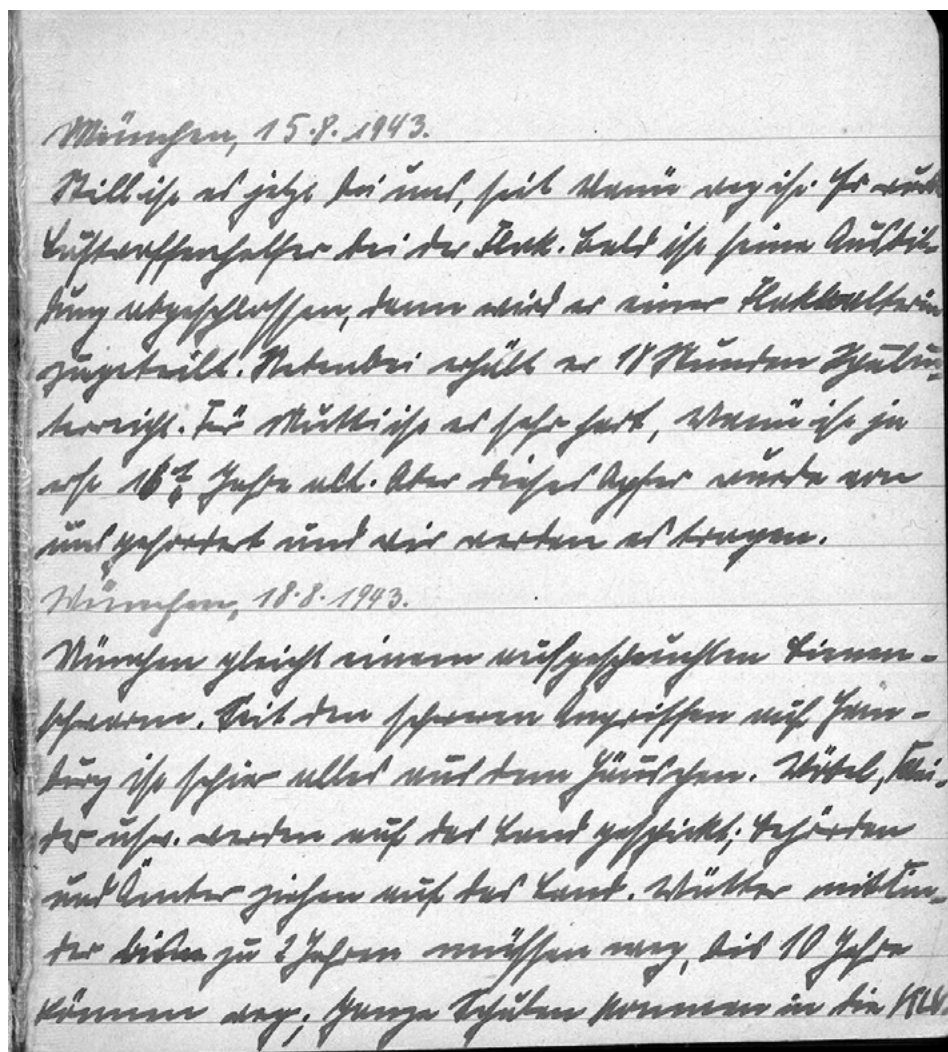 München, 15.8.1943.
Still ist es jetzt bei uns, seit Manü weg ist. Er wurde
Luftwaffenhelfer bei der Flak. Bald ist seine Ausbil-
dung abgeschlossen, dann wird er einer Flakbatterie
zugeteilt. Nebenbei erhält er 18 Stunden Schulun-
terricht. Für Mutti ist es sehr hart, Manü ist ja
erst 16 Jahre alt. Aber dieses Opfer wurde von
uns gefordert und wir werden es tragen.
München, 18.8.1943.
München gleicht einem aufgescheuchten Bienen-
schwarm. Seit den schweren Angriffen auf Ham-
burg ist schier alles aus dem Häuschen. Möbel, Klei-
der usw. werden auf das Land geschickt; Behörden
und Ämter ziehen auf das Land. Mütter mit Kin-
der zu 2 Jahren müssen weg, bis 10 Jahre
können weg; ganze Schulen kommen in die